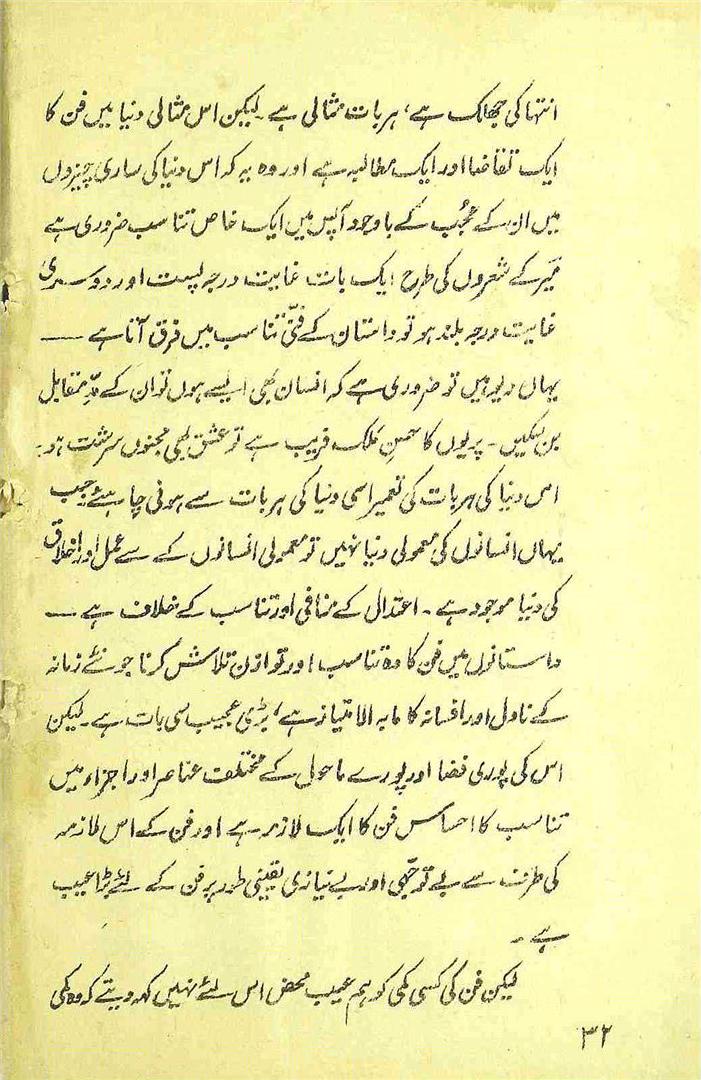 انتہا کی جھلک ہے، ہر بات مثالی ہے۔ لیکن اس مثالی دنیا میں فن کا
ایک تقاضا اور ایک مطالبہ ہے اور وہ یہ کہ اس دنیا کی ساری چیزوں
میں ان کے عجُب کے باوجود آپس میں ایک خاص تناسب ضروری ہے
میر کے شعروں کی طرح ایک بات غایت درجہ پست اور دوسری
غایت درجہ بلند ہو تو داستان کے فنّی تناسب میں فرق آتا ہے ——
یہاں دیو ہیں تو ضروری ہے کہ انسان بھی ایسے ہوں تو ان کے مدِّ مقابل
بن سکیں۔ پریوں کا حسن ملک فریب ہے تو عشق بھی مجنوں سرشت ہو۔
اس دنیا کی ہر بات کی تعمیر اسی دنیا کی ہر بات سے ہونی چاہیئے جب
یہاں انسانوں کی معمولی دنیا نہیں تو معمولی انسانوں کے سے عمل اور اخلاق
کی دنیا موجود ہے۔ اعتدال کے منافی اور تناسب کے خلاف ہے ——
داستانوں میں فن کا وہ تناسب اور توازن تلاش کرنا جو نئے زمانہ
کے ناول اور افسانہ کا مابہ الامتیاز ہے، بڑی عجیب سی بات ہے۔ لیکن
اس کی پوری فضا اور پورے ماحول کے مختلف عناصر اور اجزاء میں
تناسب کا احساس فن کا ایک لازمہ ہے اور فن کے اس لازمہ
کی طرف سے بے توجّہی اور بے نیازی یقینی طور پر فن کے لئے بڑا عیب
ہے۔
لیکن فن کی کسی کمی کو ہم عیب محض اس لئے نہیں کہہ دیتے کہ وہ کمی
۳۲